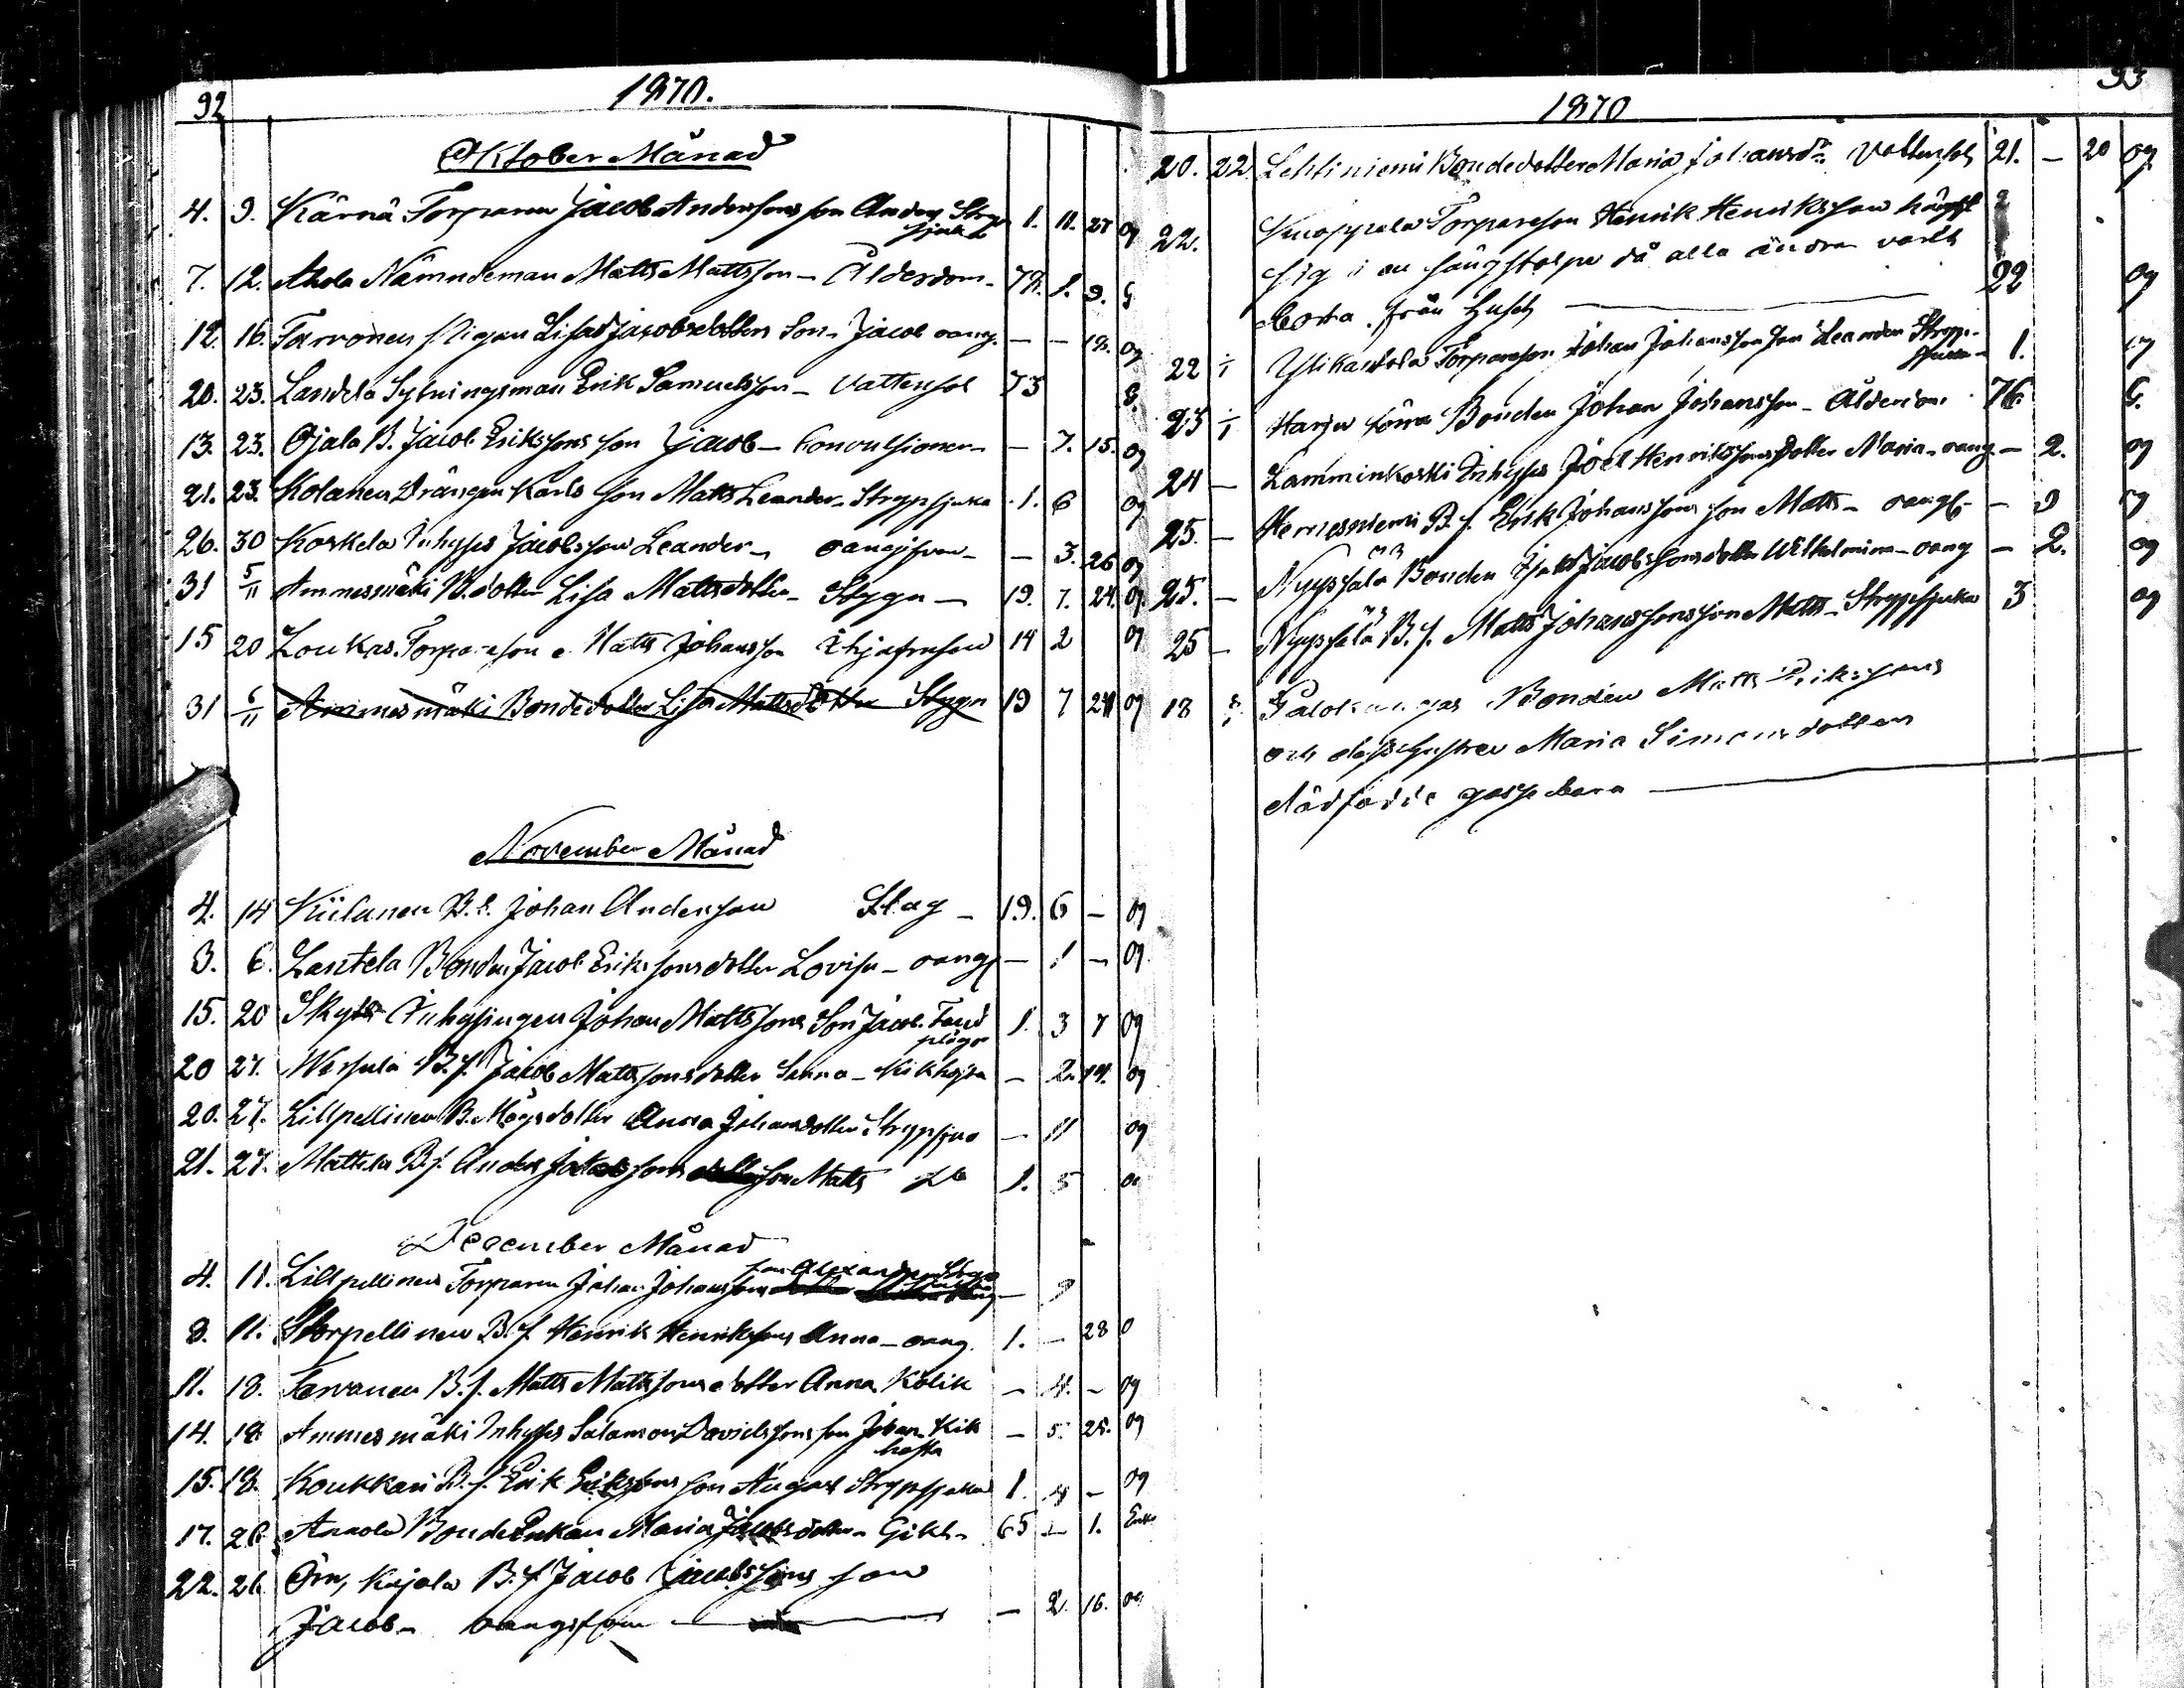 92
1870.
Oktober Månad
4. 9. Kärnä Torparen Jacob Anderssons son Anders Stryp 1. 11. 27 og
sjuka
7. 12. Ahola Nämndeman Matts Mattsson - Ålderdom - 79. 1. 9. G
12. 16. Tarvonen Pigan Lisa Jacobsdotters Son - Jacob oang. - - 18. og
20. 23. Landela Sytningsman Erik Samuelsson - Vattensot 73 G.
13. 23. Ojala B. Jacob Erikssons son Jacob - Convulsioner - 7. 15. og
21. 23. Kolanen Drängen Karls son Matts Leander - Strypsjuka 1. 6 og
26. 30 Koskela Inhyses Jacobsson Leander - oangifven - - 3. 26 og
31 5/11 Ammesmäki B. dotter Lisa Mattsdotter - Stygn - 19. 7. 24. og
15 20 Loukas Torpareson Matts Johansson ihjelfrusen 14 2 og
31 6/11 Ammesmäki Bondedotter Lisa Mattsdotter Stygn 19 7 24 og
November Månad
4. 14 Kiilunen B. s. Johan Andersson Slag - 19. 6 - og
3. 6. Lantela Bonden Jacob Erikssons dotter Lovisa - oang - 1 - og
15. 20 Skytte Inhysingen Johan Mattssons Son Jacob Tand 1. 3 7 og
plåga
20 27. Wesala B. f. Jacob Mattssons dotter Sanna - Kikhosta - 2. 14. og
20. 27. Lillpellinen B. Mågs dotter Anna Johansdotter Strypsjuka - 11 og
21. 27. Mattila B. f. Anders Jakobssons son Matts Do 1. 5 og
December Månad
son Alexander Stryp
4. 11. Lillpellinen Torparen Johan Johanssons - 9
8. 11. Storpellinen B. f. Henrik Henrikssons Anna - oang. 1. - 28 o
11. 18. Tarvanen B. f. Matts Mattssons dotter Anna Kolik - 4. - og
14. 18. Ammesmäki Inhyses Salamon Davidssons son Johan Kik - 5. 25. og
hosta
15. 18. Koukkari B. f. Erik Erikssons son August Strypsjuka 1. 4 - og
17. 26 Annola Bonde Enkan Maria Jacobsdotter - Gikt - 65 - 1. Enka
22. 26 Örn, Kujala B. f. Jacob Jacobssons son
Jacob - oangifven - 2. 16. og
93
1870
20. 22. Lehtiniemi Bondedotter Maria Johansdr. Vattensot 21. - 20 og
22. Knoppala Torpareson Henrik Henriksson hängt
sig i en sängstolpe då alla andra varit
borta från huset 22 og
22 1/1 Ylikantola Torpareson Johan Johanssons son Leander Stryp- 1. og
sjuka
23 1/1 Harju förra Bonden Johan Johansson - Ålderdom 76. G.
24 - Lamminkoski Inhyses Joel Henrikssons dotter Maria - oang. - 2. og
25. - Herniesniemi B. f. Erik Johanssons son Matts - oangf. - 9 og
25. - Nyyssälä Bonden Isak Jacobssons dotter Wilhelmina - oang - 2. og
25 - Nyyssälä B. f. Matts Johanssons son Matts - Strypsjuka 3 og
18 Palokangas Bonden Matts Erikssons
och dess hustru Maria Simonsdotters
dödfödde gossebarn